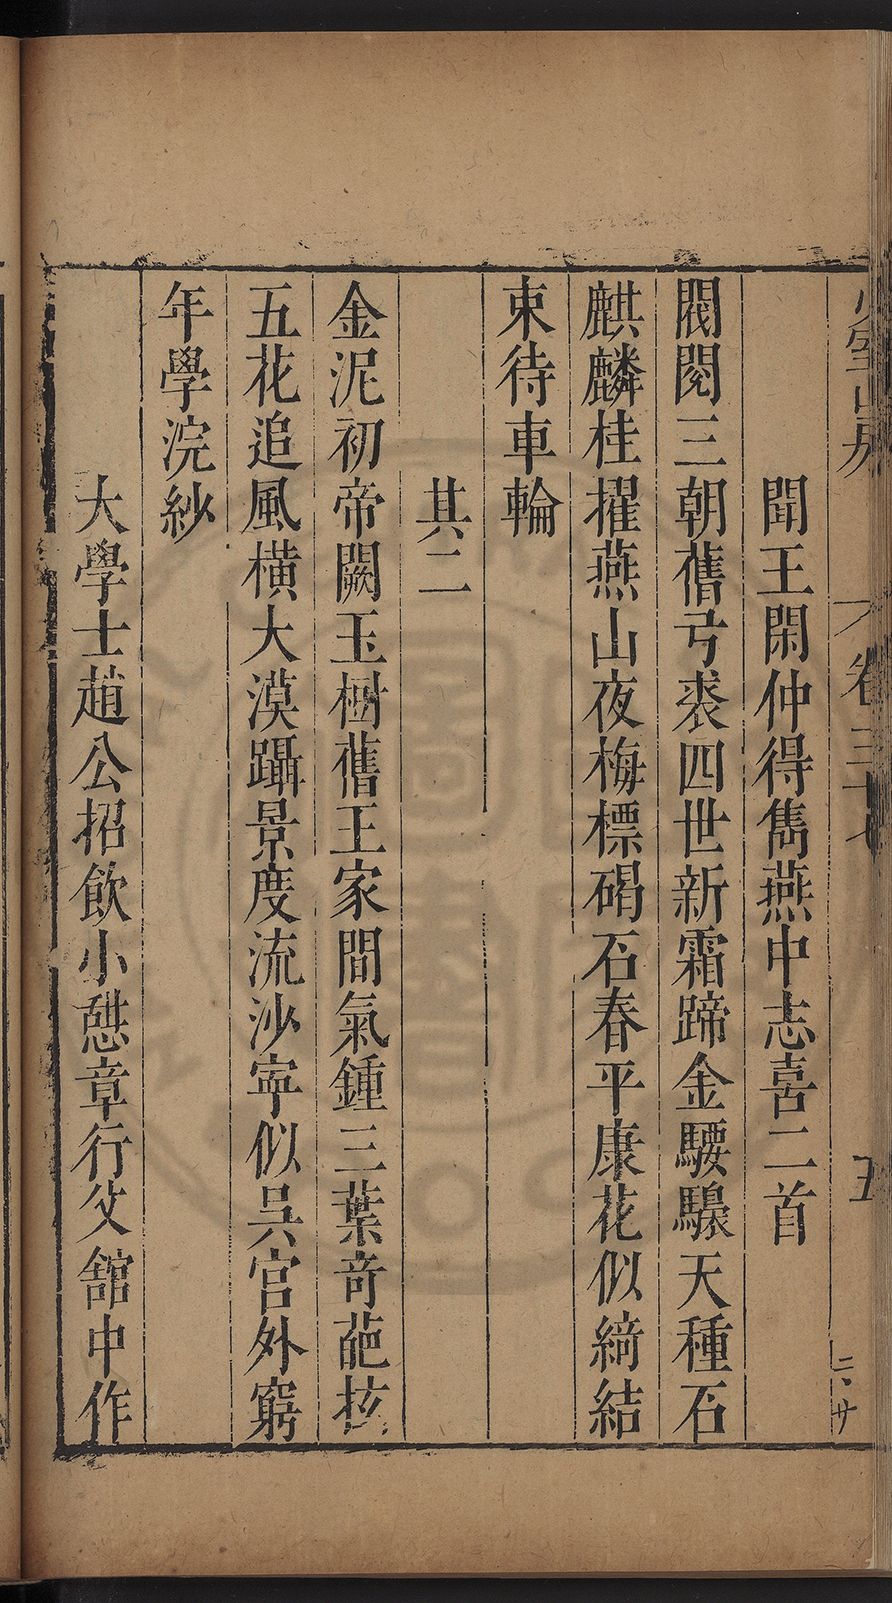 少室山房
卷三十七
五
聞王閑仲得雋燕中志喜二首
閥閱三朝舊弓裘四世新霜蹄金騕驥天種石
麒麟桂擢燕山夜梅標碣石春平康花似綺結
束待車輪
其二
金泥初帝闕玉樹舊王家間氣鍾三葉奇葩拔
五花追風橫大漠躡景度流沙寧似吳宮外窮
年學浣紗
大學士趙公招飲小憩章行父館中作